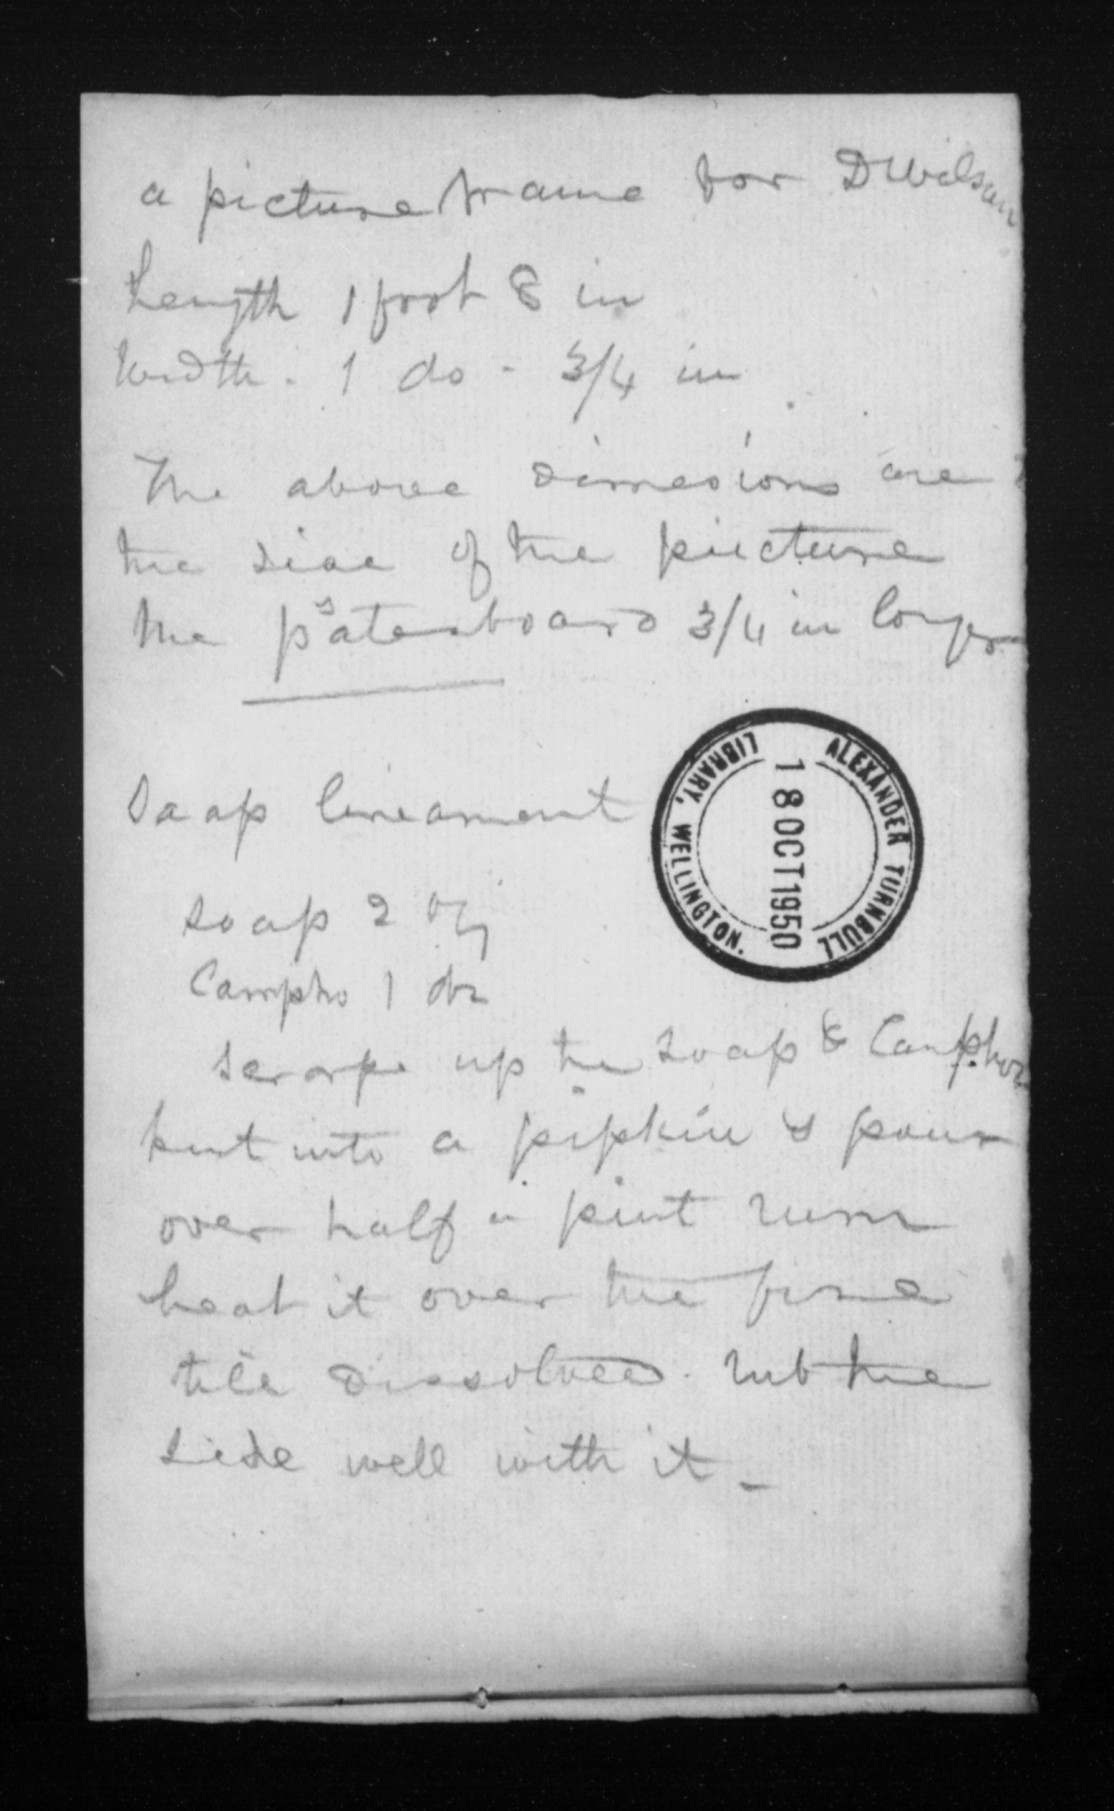 a picture frame for D Wilson
Length 1 foot 8 in
Width . 1 do - 3/4 in
The above dimesions are
the size of the piecture
the psatesboard 3/4 in longer
Soap lineament
soap 2 oz
Campho 1 do
scrape up the soap & Camphor
put into a pipkin & pour
over half a pint rum
heat it over the fire
till dissolved. rub the
side well with it _
ALEXANDER TURNBULL
LIBRARY, WELLINGTON.
18 OCT 1950